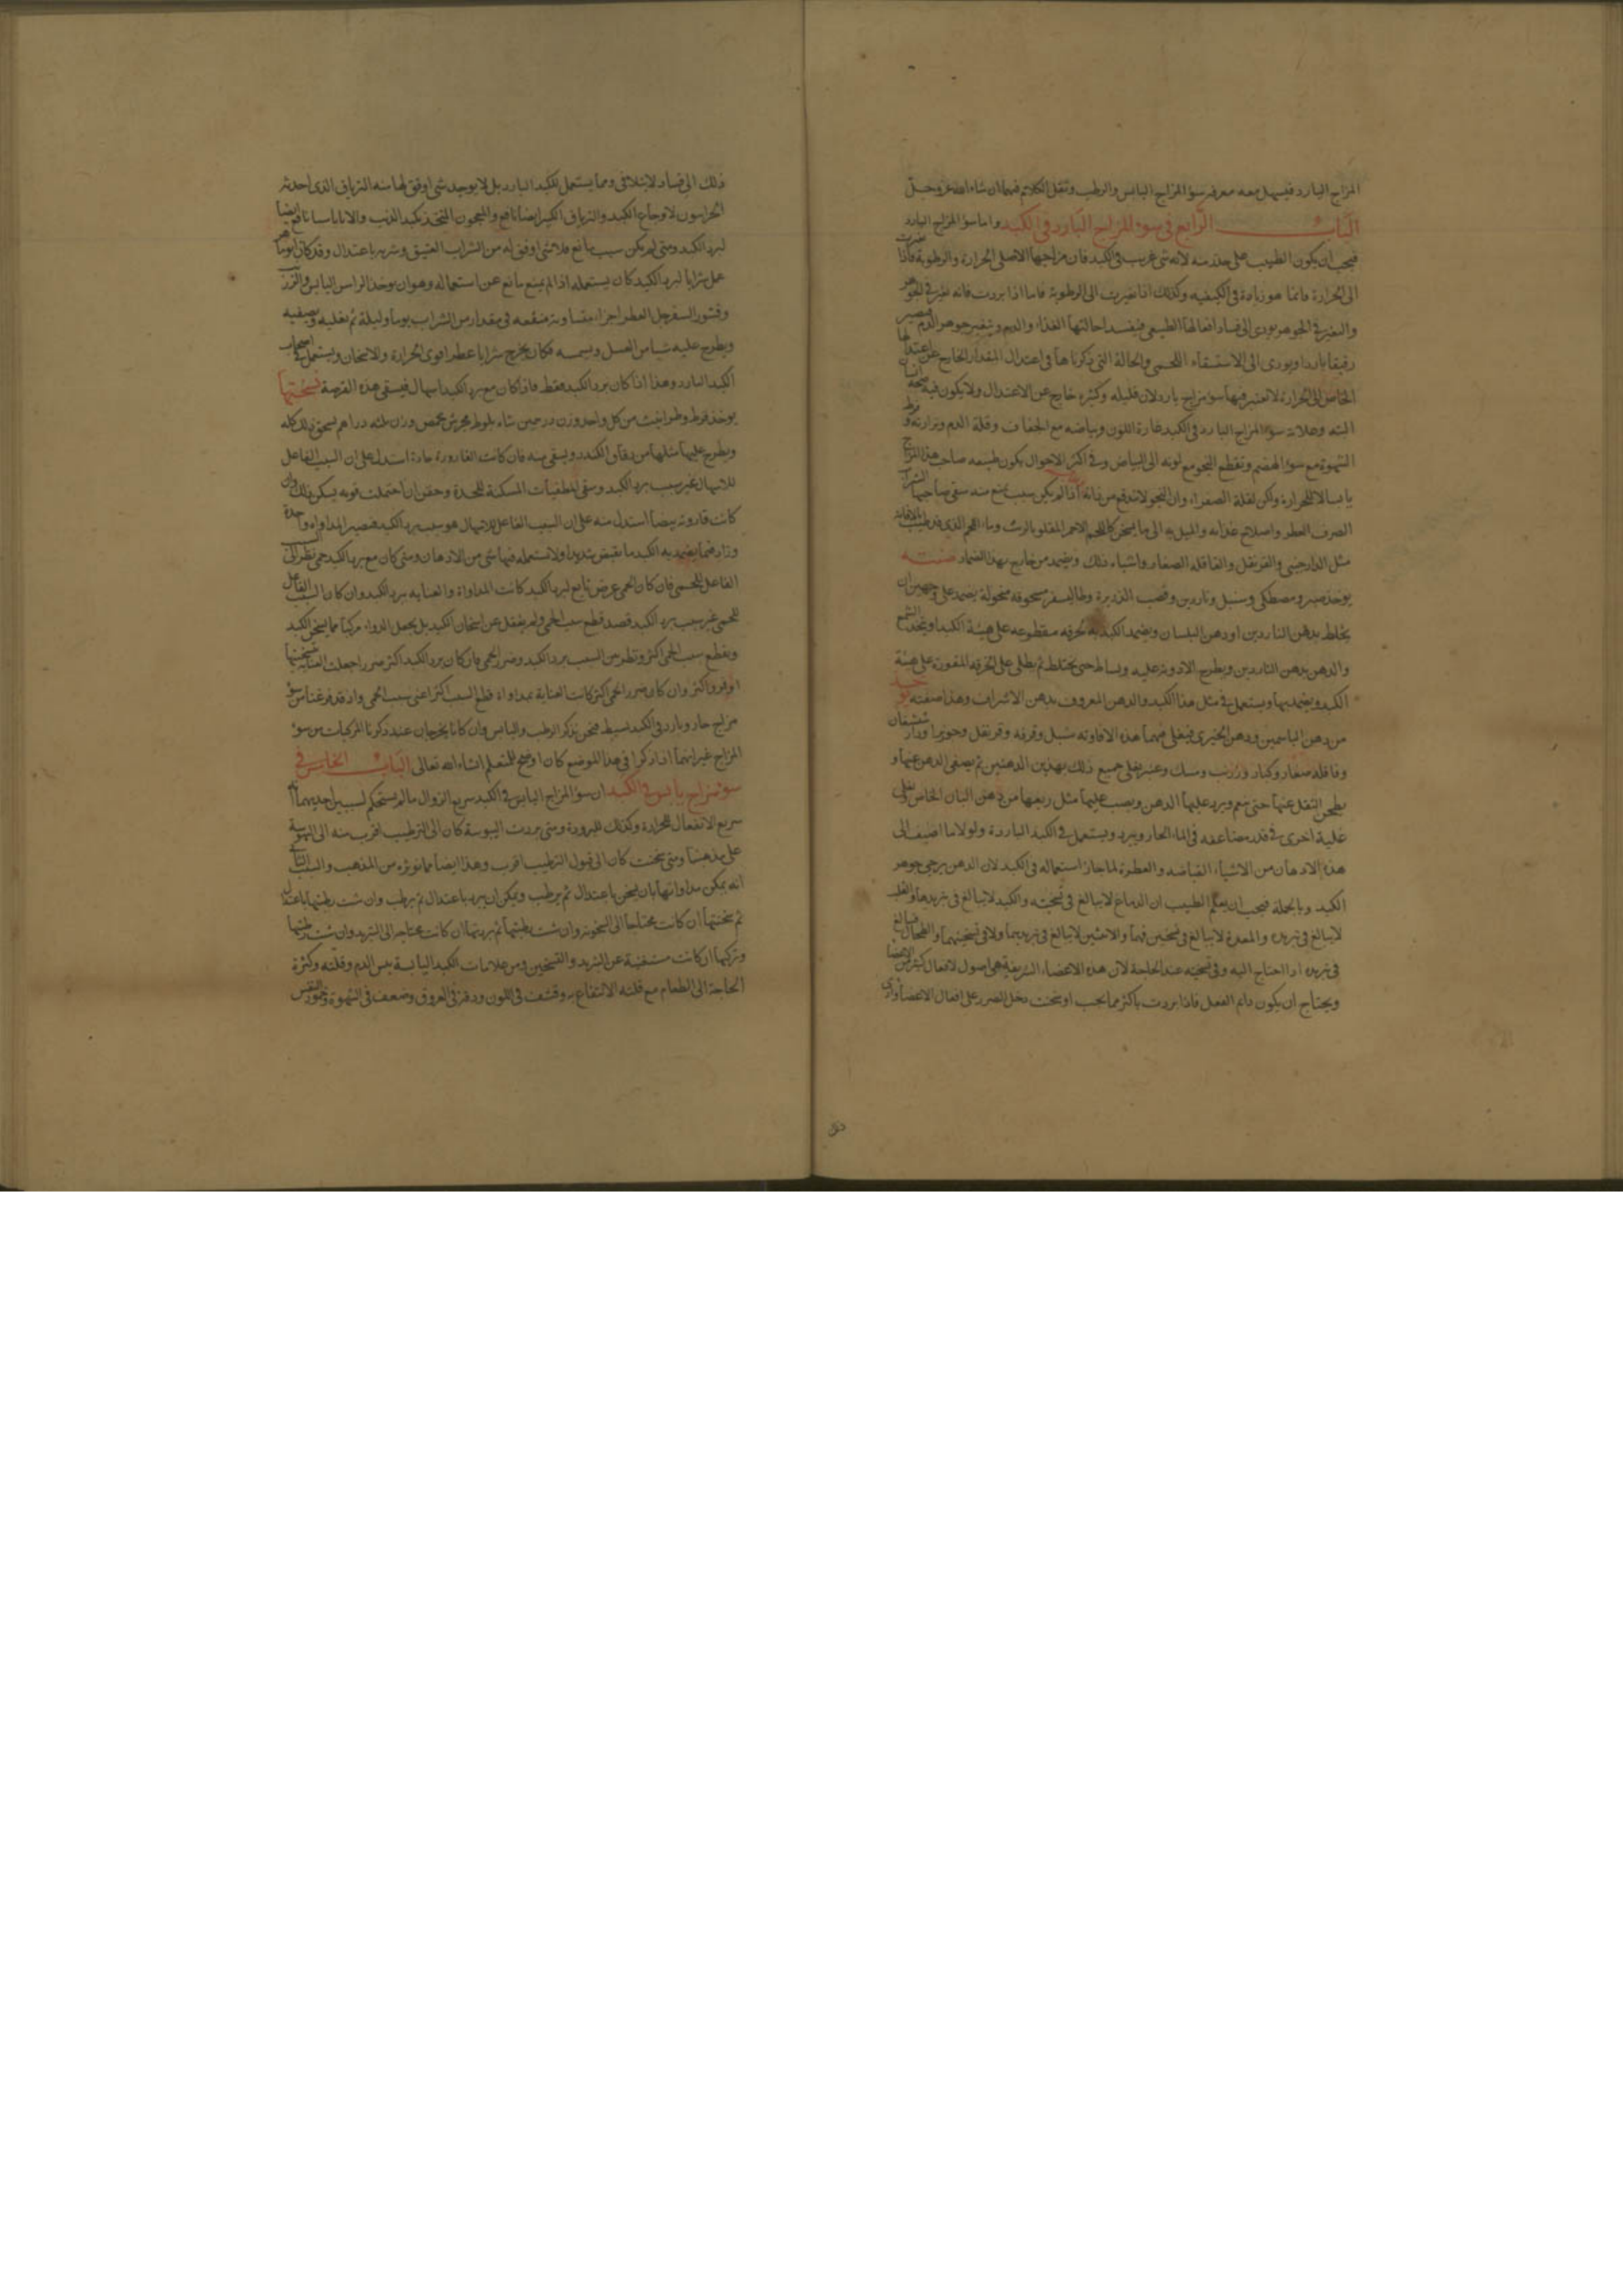 المزاج البارد فيسهل معه معرفه سوء المزاج اليابس والرطب وننقل الكلام فيهما ان شاء الله عز وجل
الباب الرابع في سوء المزاج البارد في الكبد واما سوء المزاج البارد
فيجب ان يكون الطبيب على حذر منه لانه شي غريب في الكبد فان مزاجها الاصلي الحرارة والرطوبة فاذا تغيرت
الى الحرارة فانما هو زيادة في الكيفيه وكذلك اذا تغيرت الى الرطوبة فاما اذا بردت فانه تغير في الجوهر
والتغير في الجوهر يودي الى فساد افعالها الطبيعي فيفسد احالتها الغذاء والدم ويتغير جوهر الدم فيصير
رقيقا باردا ويودي الى الاستسقاء اللحمي والحالة التي ذكرناها في اعتدال المقدار الخارج عن اعتدالها
الخاص الى الحرارة لا تعتبر فيها سوء مزاج بارد لان قليله وكثيره خارج عن الاعتدال ولا يكون فيه صحة
البته وعلامة سوء المزاج البارد في الكبد اللون وبياضه مع الجفاف وقلة الدم ونزارته و
الشهوة مع سوء الهضم وتقطع النجو مع لونه الى البياض وفي اكثر الاحوال يكون طبيعه صاحب هذا المزاج
يابسا لا للحرارة ولكن لقلة الصفراء وان النجو لا يندفع من ذاته اذا لم يكن سبب يمنع منه سقى صاحبها الشراب
الصرف العطر واصلاح غذائه والميل به الى ما يسخن كاللحم الاحمر المقلو بالزيت وماء اللحم الذي قد طيب بالافاويه
مثل الدارصيني والقرنفل والقاقله الصغار واشباه ذلك ويضمد من خارج بهذا الضماد صفته
يوخذ صبر ومصطكى وسنبل وناردين وقصب الذريرة وطاليسفر مسحوقه منخولة يضمد على وجهين ان
يخلط بدهن الناردين او دهن البلسان ويضمد الكبد به بخرقه مقطوعه على هيئة الكبد او يتخذ الشمع
والدهن بدهن الناردين ويطرح الادوية عليه ويساط حتى يختلط ثم يطلى على الخرقه المقورة على هيئة
الكبد ويضمد بها ويستعمل في مثل هذا الكبد والدهن المعروف بدهن الاشراف وهذا صفته
من دهن الياسمين ودهن الخيري فيغلى فيهما هذه الافاويه سنبل وقرفه وقرنفل وجوزبوا ودارشيشعان
وقاقله صغار وكبار وزرنب ومسك وعنبر يغلى جميع ذلك بهذين الدهنين ثم يصفى الدهن عنها و
يطحن الثفل عنها حتى ينعم ويرد عليها الدهن ويصب عليها مثل ربعها من دهن البان الخاص ويغلى
غلية اخرى في قدر مضاعفه في الماء الحار ويبرد ويستعمل في الكبد الباردة ولولا ما اضيف الى
هذه الادهان من الاشياء القباضه والعطرة لما جاز استعماله في الكبد لان الدهن يرخي جوهر
الكبد وبالجملة فيجب ان يعلم الطبيب ان الدماغ لا يبالغ في تسخينه والكبد لا يبالغ في تبريدها والقلب
لا يبالغ في تبريده والمعدة لا يبالغ في تسخين فمها والانثيين لا يبالغ في تبريدهما ولا في تسخينهما والطحال فيبالغ
في تبريده اذا احتاج اليه وفي تسخينه عند الحاجة لان هذه الاعضاء الشريفة هي اصول لافعال كثير من الاعضا
ويحتاج ان يكون دائم الفعل فاذا بردت باكثر مما يجب او سخنت دخل الضرر على افعال الاعضا وادى
ذلك
ذلك الى فساد لا يتلافى ومما يستعمل للكبد البارد بل لا يوجد شي اوفق لها منه الترياق الذي احدثه
لاوجاع الكبد والترياق الكبير ايضا نافع والمعجون المتخذ بكبد الذيب والاثاناسيا نافع ايضا
لبرد الكبد ومتى لم يكن سبب مانع فلا شي اوفق له من الشراب العتيق وشربه باعتدال وقد كان ابو ماهر
عمل شرابا لبرد الكبد كان يستعمله اذا لم يمنع مانع عن استعماله وهو ان يوخذ الراسن اليابس والزرنب
وقشور السفرجل العطر اجزاء متساوية منقعه في مقدار من الشراب يوما وليلة ثم يغليه ويصفيه
ويطرح عليه شيا من العسل ويسيمه فكان يخرج شرابا عطرا قوى الحرارة والاسخان ويستعمل في اصحاب
الكبد البارد وهذا اذا كان برد الكبد فقط فاذا كان مع برد الكبد اسهال فيسقى هذه القرصة نسختها
يوخذ قرط وطراثيث من كل واحد وزن درهمين شاه بلوط مجرش محمص وزن ثلثه دراهم يسحق ذلك كله
ويطرح عليها مثلها من دقاق الكندر ويسقى منه فان كانت القارورة حادة استدل على ان السبب الفاعل
للاسهال غير سبب برد الكبد وسقى المطفيات المسكنة للحدة وحقن ان احتملت قوته يسكن ذلك وان
كانت قارورته بيضا استدل منه على ان السبب الفاعل للاسهال هو سبب برد الكبد فيصير المداواة واحدة
وزاد فيما يضمد به الكبد ما يقبض شديدا ولا تستعمله فيها شي من الادهان ومتى كان مع برد الكبد حمى نظر الى السبب
الفاعل للحمى فان كان الحمى عرض تابع لبرد الكبد كانت المداواة والعناية ببرد الكبد وان كان السبب الفاعل
للحمى غير سبب برد الكبد قصد قطع سبب الحمى ولم يغفل عن اسخان الكبد بل يجعل الدواء مركبا مما يسخن الكبد
ويقطع سبب الحمى اكثر ونظر من السبب برد الكبد وضرر الحمى فان كان برد الكبد اكثر ضررا جعلت العناية بتسخينها
اوفر واكثر وان كان ضرر الحمى اكثر كانت العناية بمداواة قطع السبب اكثر اعني سبب الحمى واذ قد فرغنا من سوء
مزاج حار وبارد في الكبد بسيط فنحن نذكر الرطب واليابس وان كانا يخرجان عند ذكرنا المركبات من سوء
المزاج غير انهما اذا ذكرا في هذا الموضع كان اوضح للمتعلم ان شاء الله تعالى الباب الخامس في
سوء مزاج يابس في الكبد ان سوء المزاج اليابس في الكبد سريع الزوال ما لم يستحكم لسببين احديهما انه
سريع الانفعال للحرارة وكذلك للبرودة ومتى بردت اليبوسة كان الى الترطيب اقرب منه الى اليبوسة
على مذهبنا ومتى سخنت كان الى قبول الترطيب اقرب وهذا ايضا مما نوثره من المذهب والسبب الثاني
انه يمكن مداواتها بان يسخن باعتدال ثم يرطب ويمكن ان يبرد باعتدال ثم يرطب وان شئت رطبتها باعتدال
ثم سخنتها ان كانت محتاجا الى السخونة وان شئت رطبتها ثم بردتها ان كانت محتاجه الى التبريد وان شئت رطبتها
وتركتها ان كانت مستغنية عن التبريد والتسخين ومن علامات الكبد اليابسة يبس الدم وقلته وكثرة
الحاجة الى الطعام مع قلة الانتفاع به وقشف في اللون ودقة في العروق وضعف في الشهوة